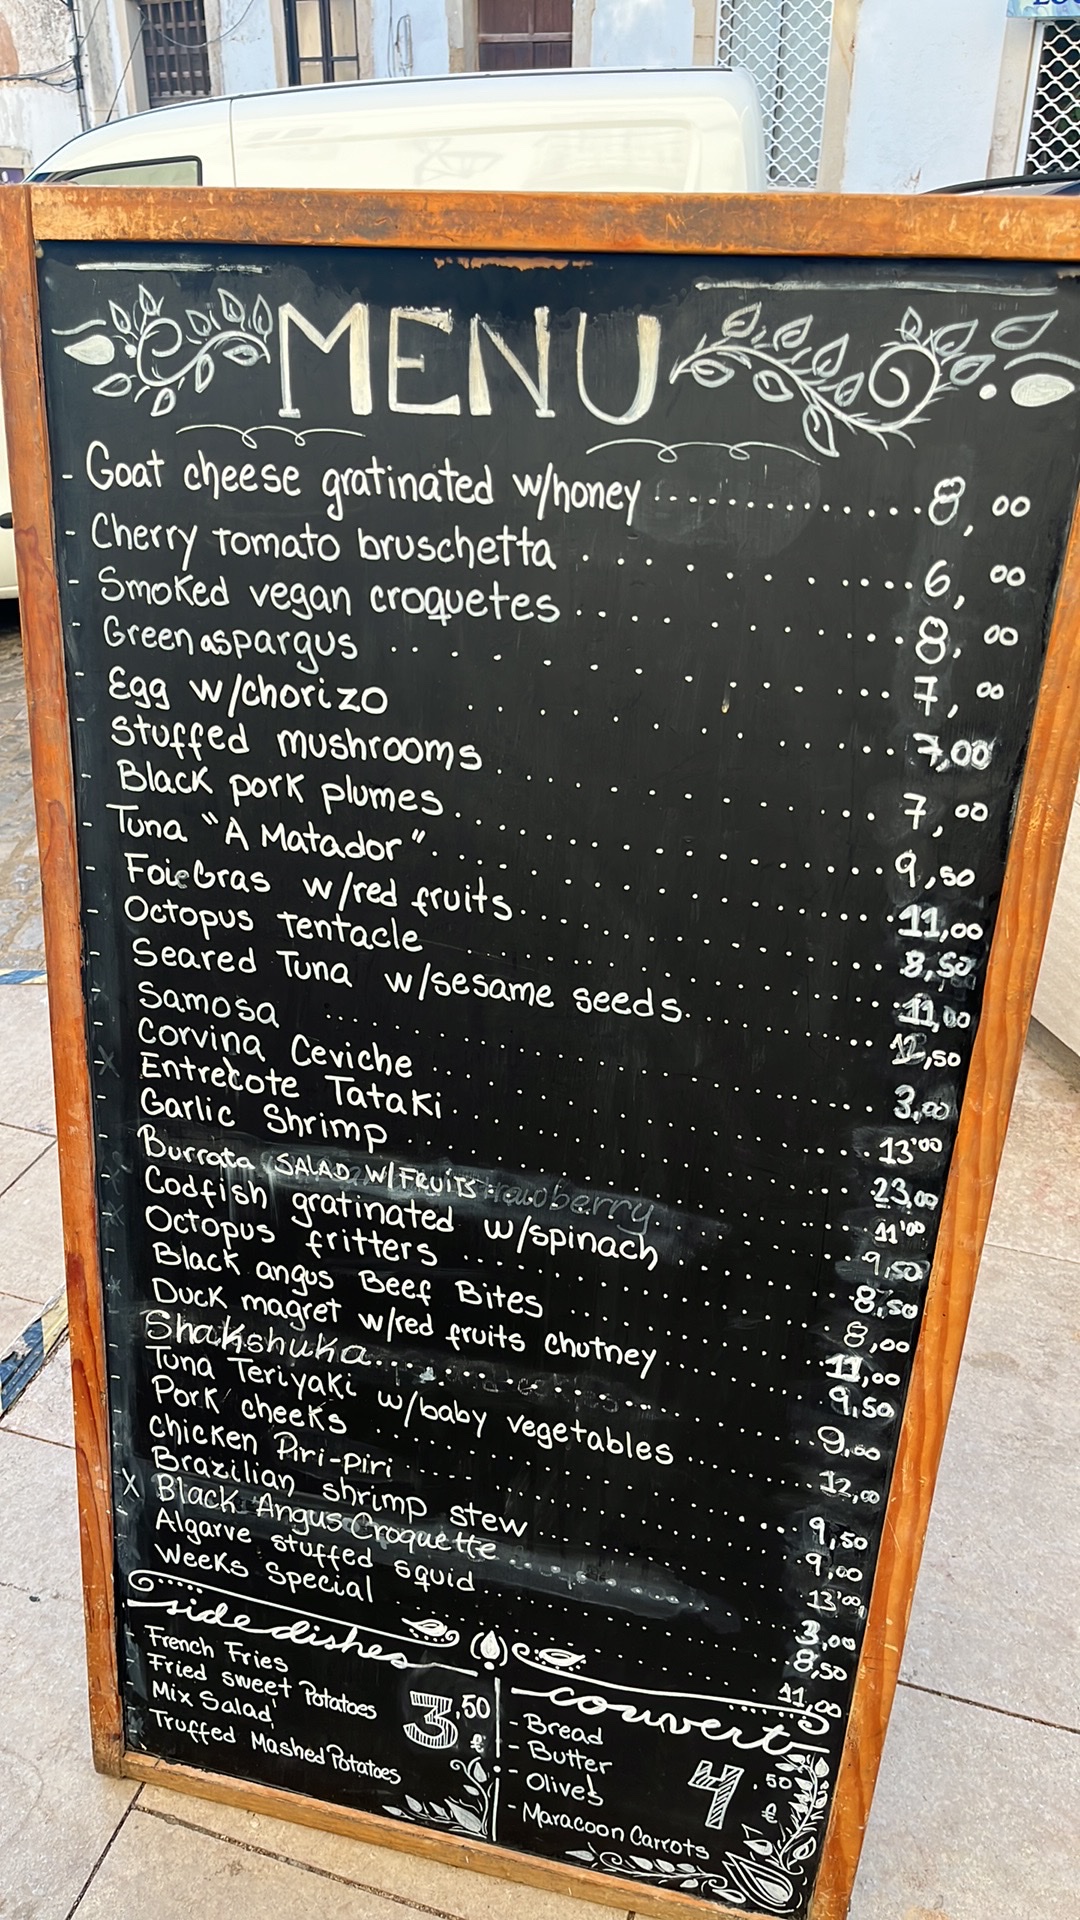 MENU
- Goat cheese gratinated w/honey ............ 8,00
- Cherry tomato bruschetta ............ 6,00
- Smoked vegan croquetes ............ 8,00
- Green aspargus ............ 7,00
- Egg w/chorizo ............ 7,00
- Stuffed mushrooms ............ 7,00
- Black pork plumes ............ 9,50
- Tuna "A Matador" ............ 11,00
- Foie Gras w/red fruits ............ 8,50
- Octopus tentacle ............ 11,00
- Seared Tuna w/sesame seeds ............ 12,50
- Samosa ............ 3,00
- Corvina Ceviche ............ 13'00
- Entrecote Tataki ............ 23,00
- Garlic Shrimp ............ 11'00
- Burrata SALAD W/FRUITS ............ 9,50
- Codfish gratinated w/spinach ............ 8,50
- Octopus fritters ............ 8,00
- Black angus Beef Bites ............ 11,00
- Duck magret w/red fruits chutney ............ 9,50
- Shakshuka ............ 9,00
- Tuna Teriyaki w/baby vegetables ............ 12,00
- Pork cheeks ............ 9,50
- Chicken Piri-piri ............ 9,00
- Brazilian shrimp stew ............ 13'00
X Black Angus Croquette ............ 3,00
- Algarve stuffed squid ............ 8,50
- Weeks Special ............ 11,00
side dishes
- French Fries
- Fried sweet Potatoes
- Mix Salad
- Truffed Mashed Potatoes
3,50 €
couvert
- Bread
- Butter
- Olives
- Maracoon Carrots
4,50 €